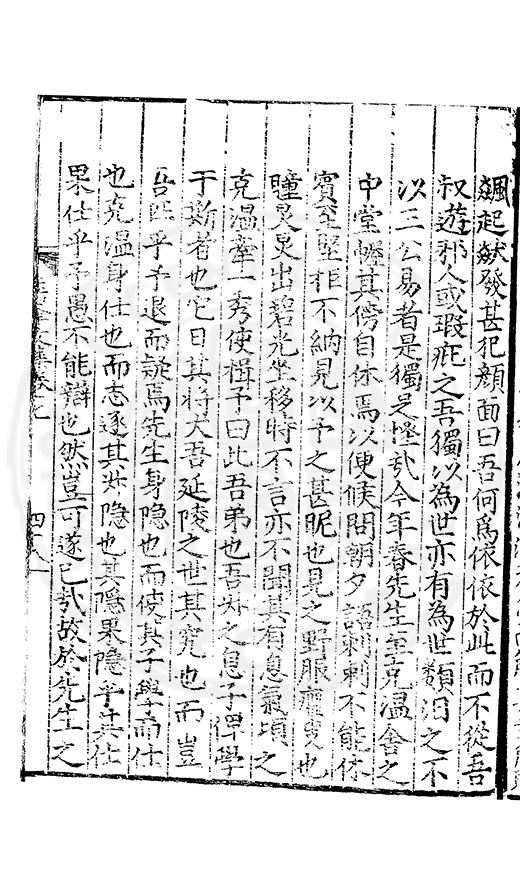 飇起猷發甚犯顔面曰吾何爲依依於此而不從吾
叔遊郡人或瑕疵之吾獨以為世亦有為世類汨之不
以三公易者是獨足怪哉今年春先生至克温舍之
中堂幄其傍自休焉以便候問朝夕語刺刺不能休
賓至堅拒不納見以予之甚昵也見之野服癯皃也
瞳炅炅出碧光坐移時不言亦不聞其有息氣頃之
克温牽一秀使揖予曰此吾弟也吾叔之息子俾學
于斯者也它日其將大吾延陵之世其宄也而豈
吾熙乎予退而疑焉先生身隐也而使其子學而仕
也克温身仕也而志逐其叔隐也其隱果隐乎其仕
果仕乎予愚不能辯也然豈可遂已哉故於先生之
文集卷九
四十八